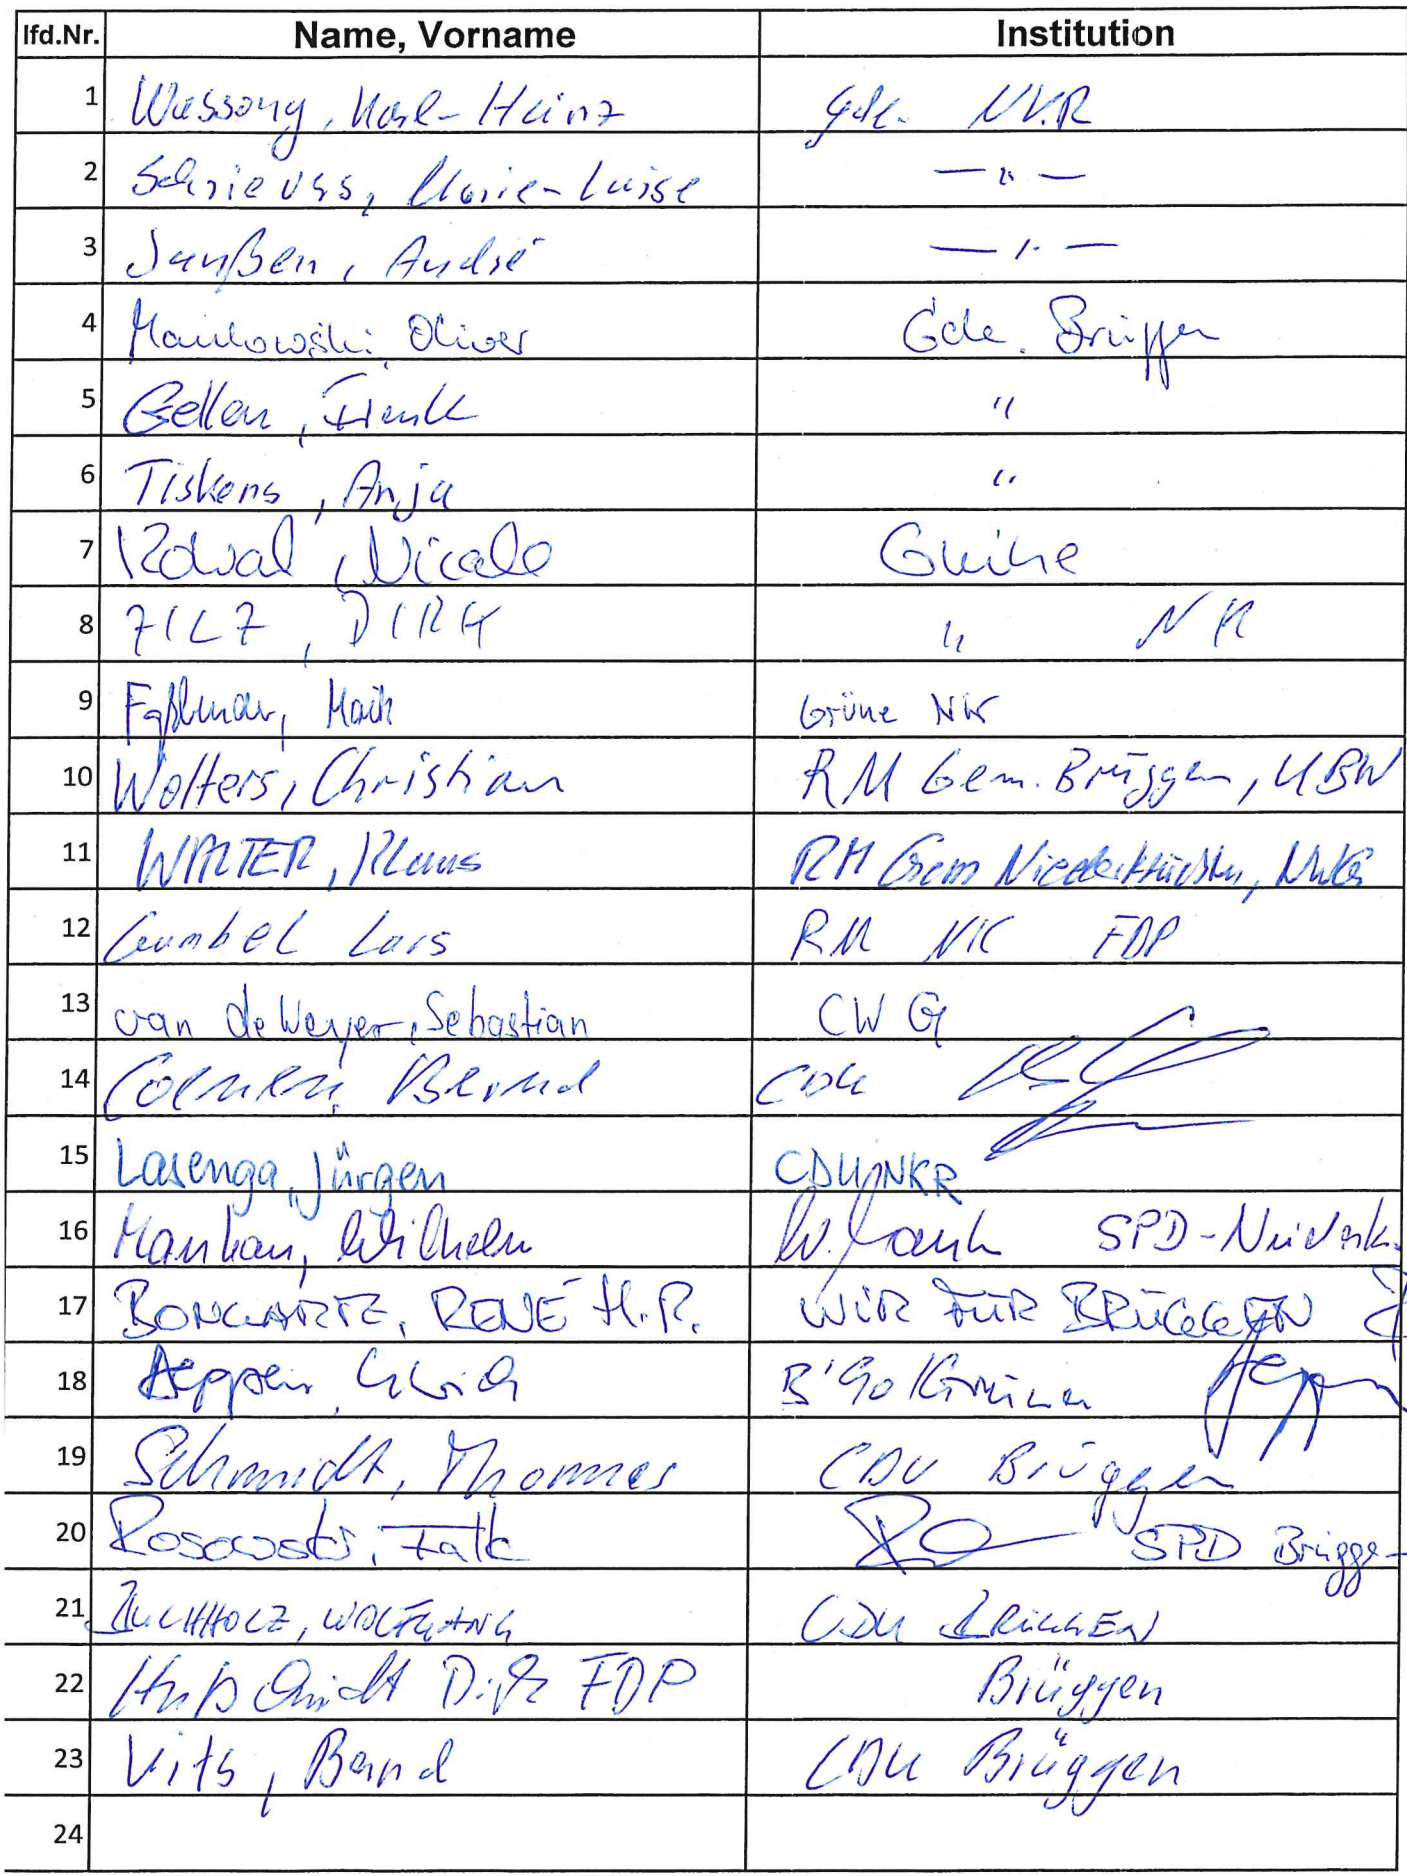 lfd.Nr. Name, Vorname Institution
1 Wassong, Karl-Heinz Gde. NKR
2 Schrievers, Marie-Luise — " —
3 Janßen, André — " —
4 Mankowski, Oliver Gde. Brüggen
5 Gellen, Frank "
6 Tiskens, Anja "
7 Kowal, Nicole Grüne
8 FILZ, DIRK " NK
9 Faßbinder, Maik Grüne NK
10 Wolters, Christian RM Gem. Brüggen, UBW
11 WALTER, Klaus RM Gem Niederkrüchten, NWG
12 Gumbel Lars RM NK FDP
13 van de Weyer, Sebastian CWG
14 Coenen, Bernd CDU
15 Lasenga, Jürgen CDU, NKR
16 Mankau, Wilhelm W. Mank SPD-Niederk.
17 BONGARTZ, RENÉ H.P. WIR FÜR BRÜGGEN
18 Deppen, Ulrich B'90/Grünen
19 Schmidt, Thomas CDU Brüggen
20 Rosowski, Falk SPD Brüggen
21 BUCHHOLZ, WOLFGANG CDU BRÜGGEN
22 Dirk FDP Brüggen
23 Vits, Bernd CDU Brüggen
24